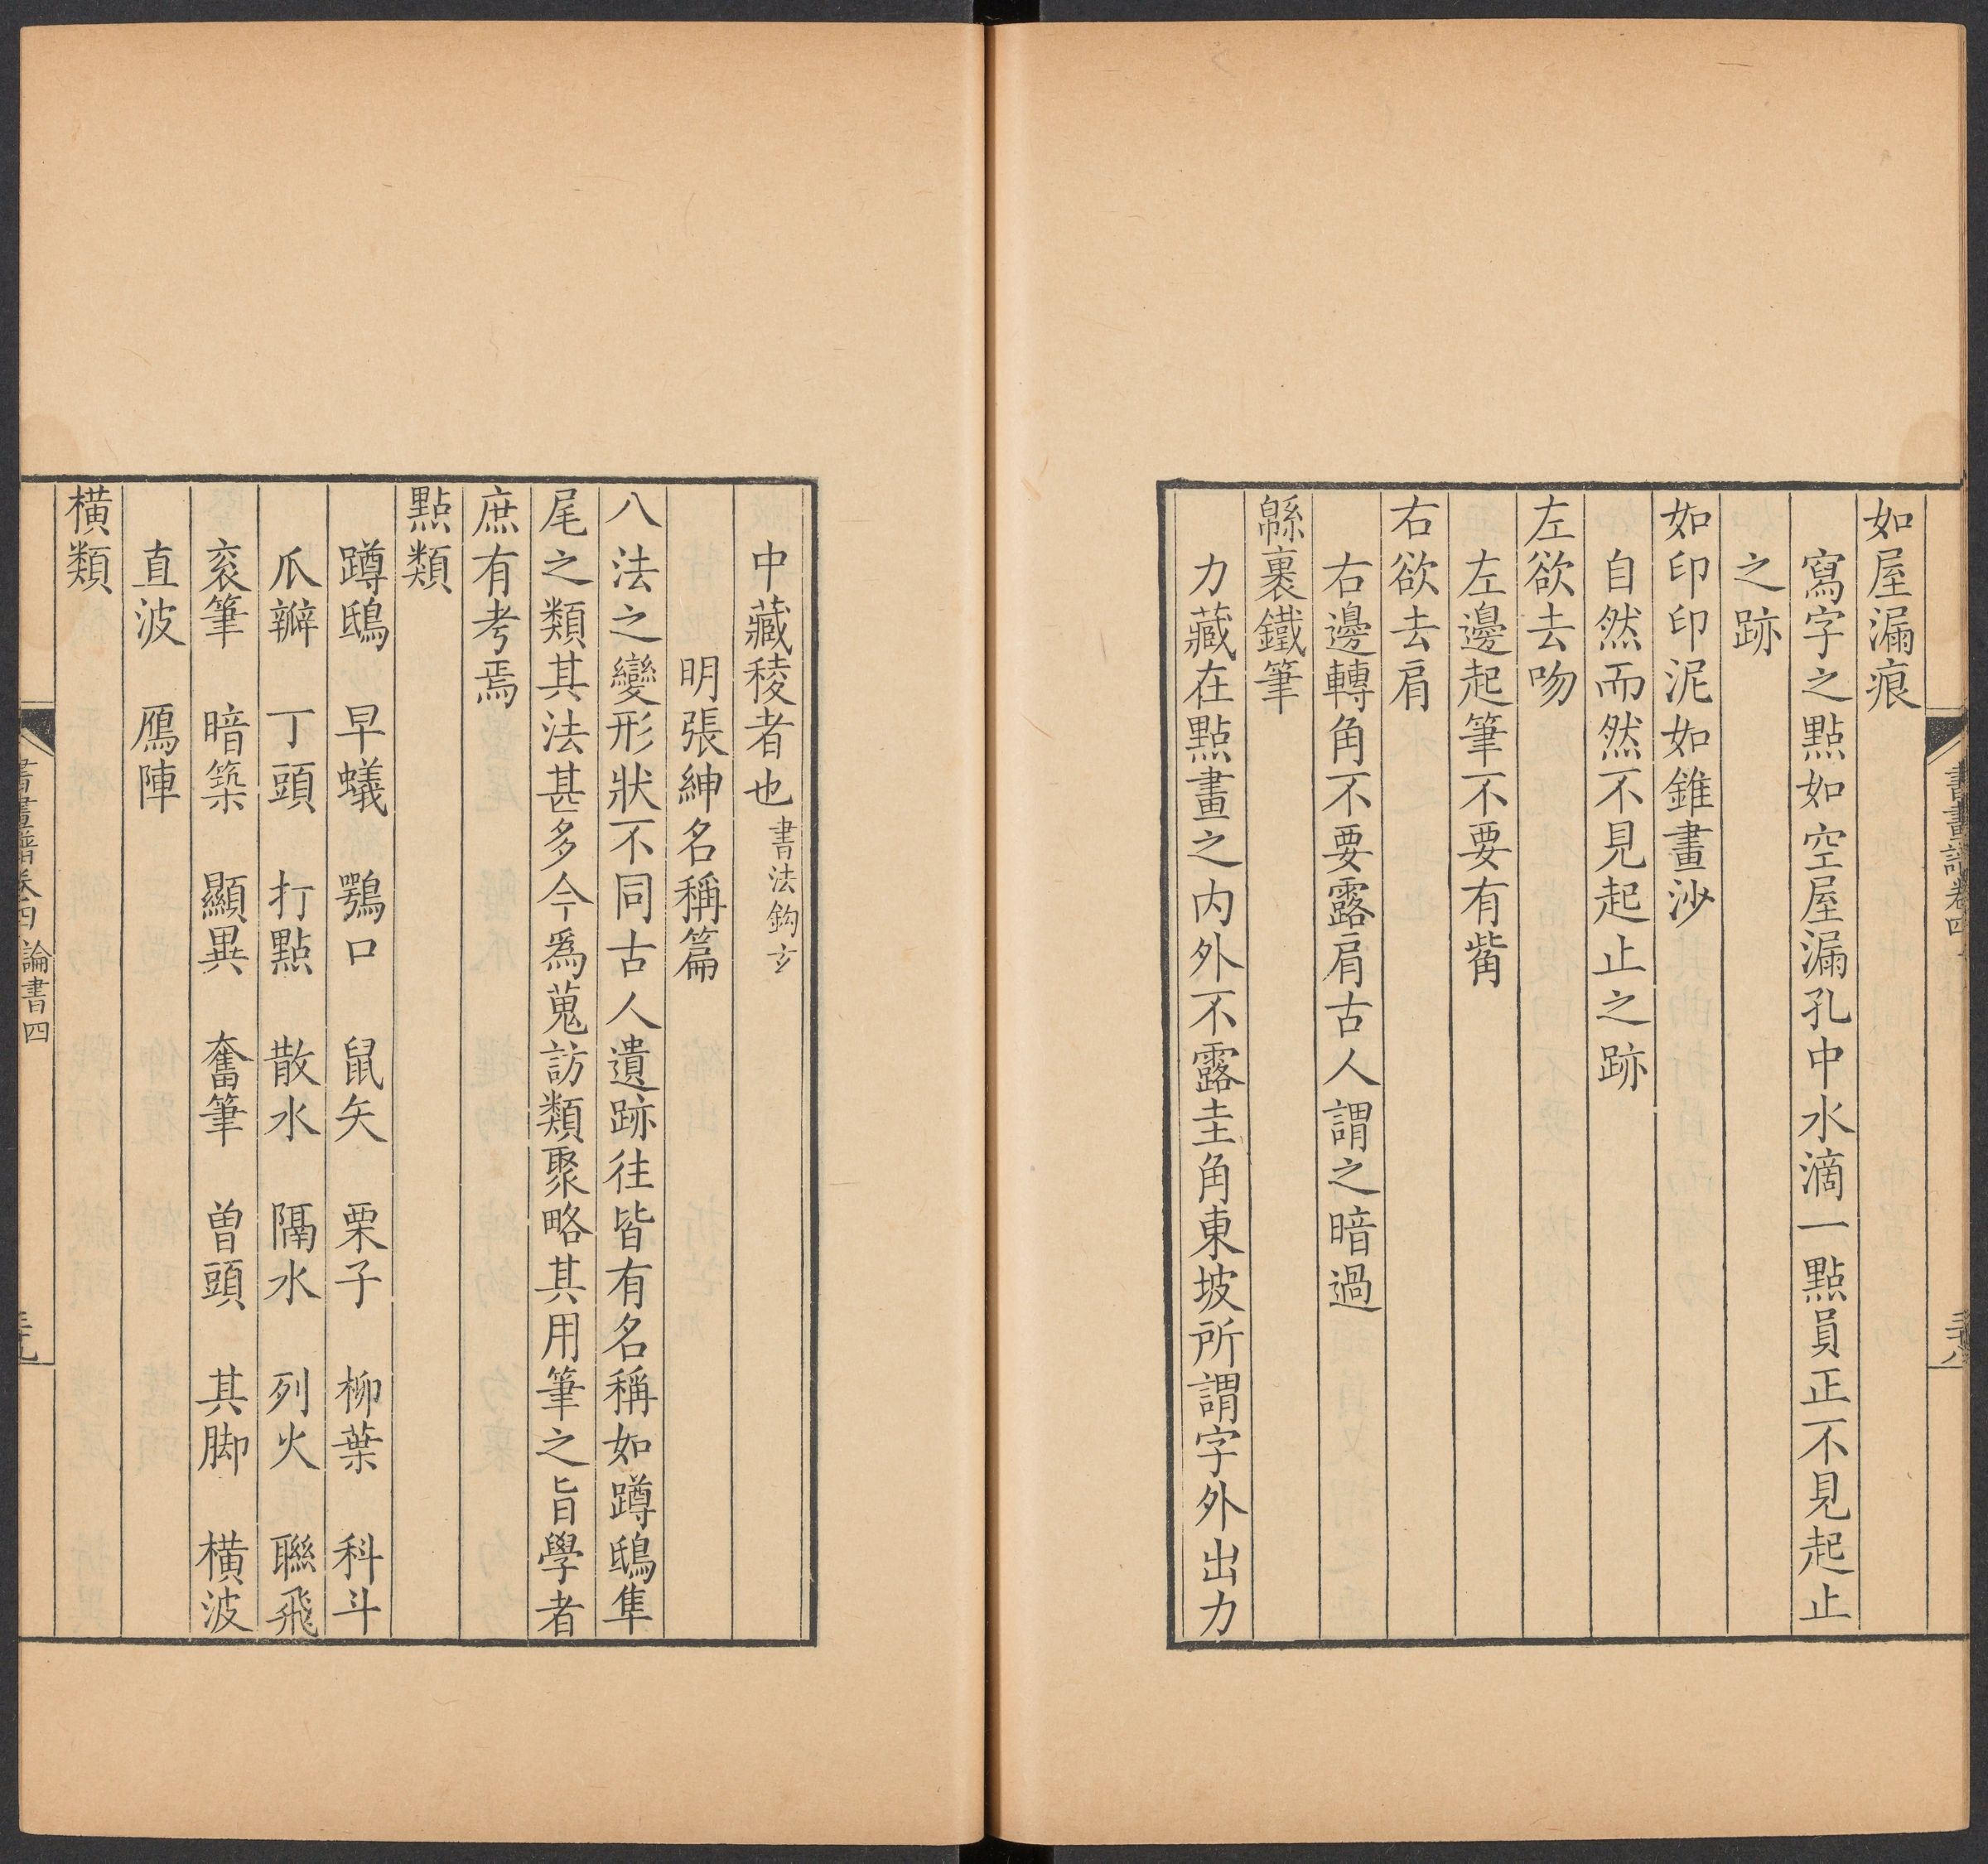 如屋漏痕
寫字之點如空屋漏孔中水滴一點員正不見起止
之跡
如印印泥如錐畫沙
自然而然不見起止之跡
左欲去吻
左邊起筆不要有觜
右欲去肩
右邊轉角不要露肩古人謂之暗過
緜裹鐵筆
力藏在點畫之内外不露圭角東坡所謂字外出力
中藏稜者也書法鈎玄
明張紳名稱篇
八法之變形狀不同古人遺跡往皆有名稱如蹲鴟隼
尾之類其法甚多今爲蒐訪類聚略其用筆之旨學者
庶有考焉
點類
蹲鴟　早蟻　鶚口　鼠矢　栗子　柳葉　科斗
爪瓣　丁頭　打點　散水　隔水　列火　聯飛
衮筆　暗築　顯異　奮筆　曾頭　其脚　横波
直波　鴈陣
横類
書畫譜卷四　論書四